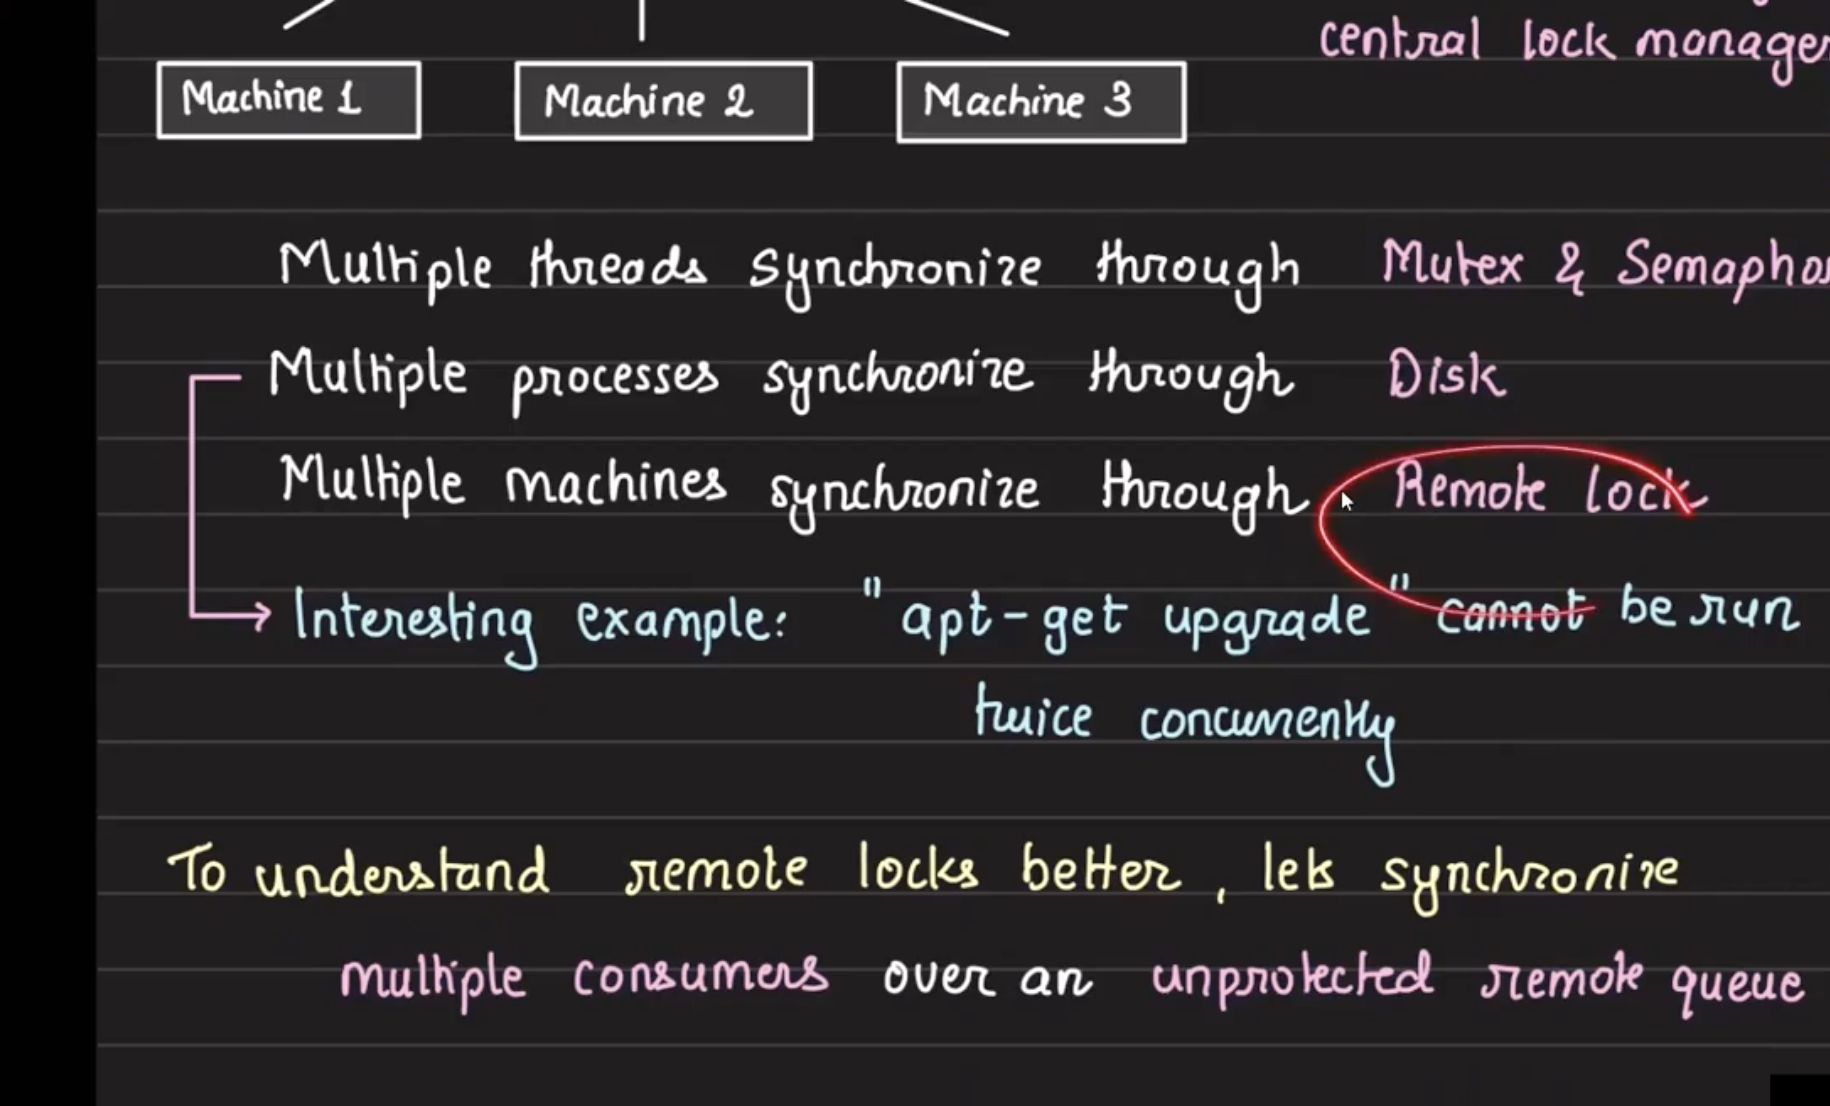 central lock manager
Machine 1
Machine 2
Machine 3
Multiple threads synchronize through Mutex & Semapho
Multiple processes synchronize through Disk
Multiple machines synchronize through Remote lock
Interesting example: "apt-get upgrade" cannot be run
twice concurrently
To understand remote locks better, lets synchronize
multiple consumers over an unprotected remote queue